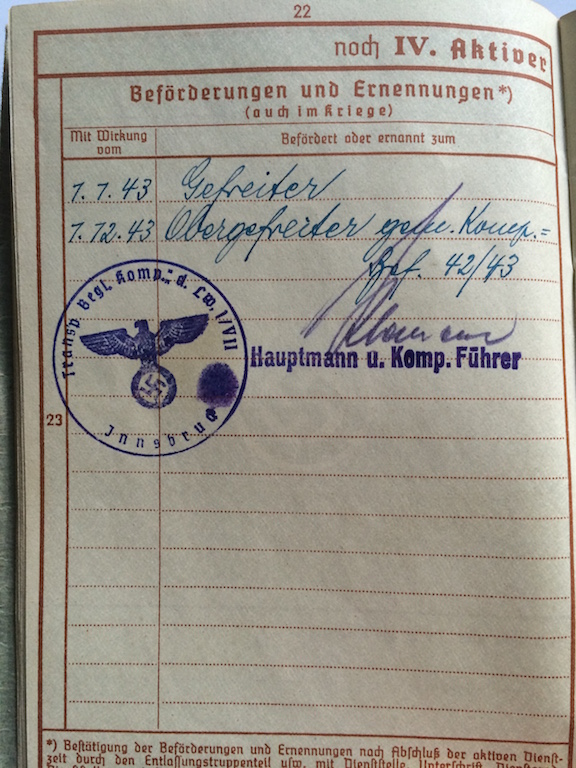 22
noch IV. Aktiver
Beförderungen und Ernennungen*)
(auch im Kriege)
Mit Wirkung
vom
Befördert oder ernannt zum
1.1.43 Gefreiter
1.12.43 Obergefreiter gem. Komp.=
Bef. 42/43
Transp. Begl. Komp. d. Lw. 1/VII
Innsbruck
Hauptmann u. Komp. Führer
23
*) Bestätigung der Beförderungen und Ernennungen nach Abschluß der aktiven Dienst-
zeit durch den Entlassungstruppenteil usw. mit Dienststelle, Unterschrift,